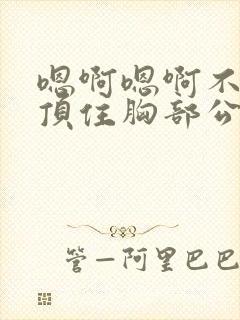 嗯啊嗯啊不
頂住胸部公
管—阿里巴巴